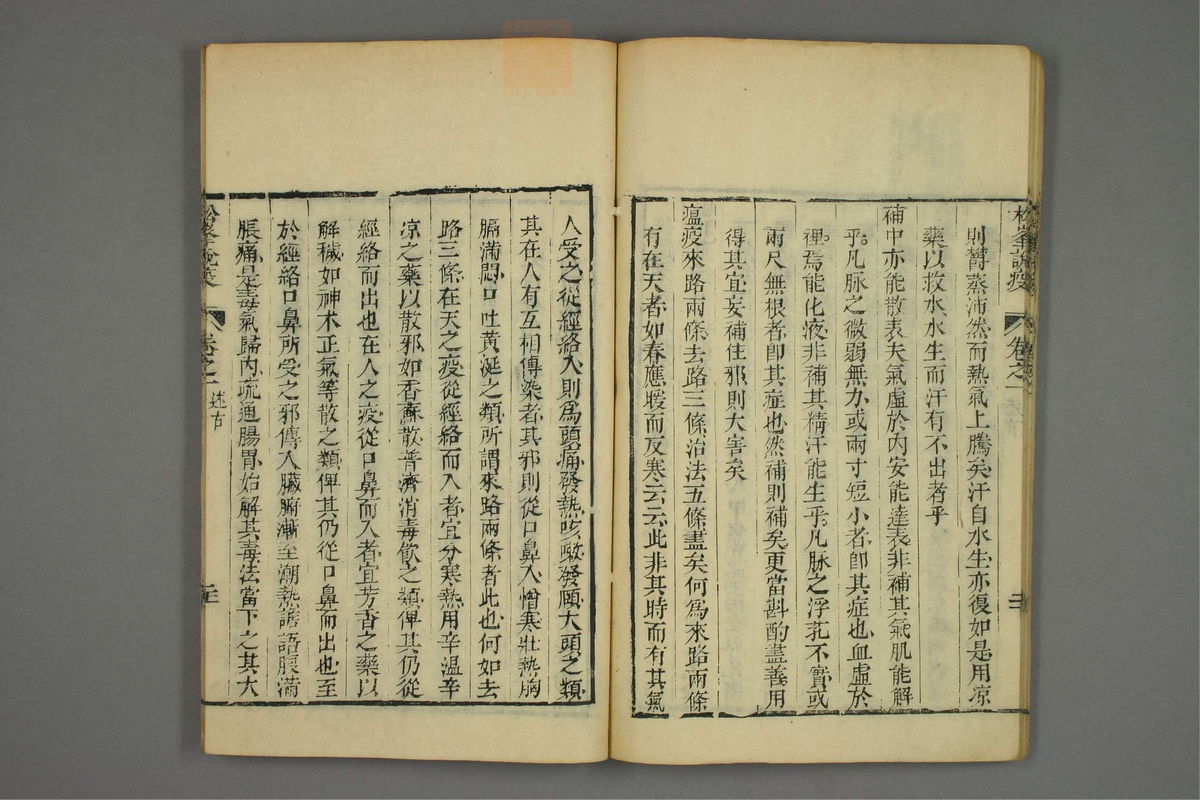 松峯說疫 卷之一
則鬱蒸沛然而熱氣上騰矣汗自水生亦復如是用凉
藥以救水水生而汗有不出者乎
補中亦能散表夫氣虛於內安能達表非補其氣肌能解
乎凡脉之微弱無力或兩寸短小者卽其症也血虛於
裡焉能化液非補其精汗能生乎凡脉之浮芤不實或
兩尺無根者卽其症也然補則補矣更當斟酌盡善用
得其宜妄補住邪則大害矣
瘟疫來路兩條去路三條治法五條盡矣何爲來路兩條
有在天者如春應暖而反寒云云此非其時而有其氣
人受之從經絡入則爲頭痛發熱咳嗽發頤大頭之類
其在人有互相傳染者其邪則從口鼻入憎寒壯熱胸
膈滿悶口吐黃涎之類所謂來路兩條者此也何如去
路三條在天之疫從經絡而入者宜分寒熱用辛温辛
凉之藥以散邪如香蘇散普濟消毒飲之類俾其仍從
經絡而出也在人之疫從口鼻而入者宜芳香之藥以
解穢如神术正氣等散之類俾其仍從口鼻而出也至
於經絡口鼻所受之邪傳入臟腑漸至潮熱譫語脹滿
脹痛是毒氣歸內疏通腸胃始解其毒法當下之其大
松峯說疫 卷之一 述古